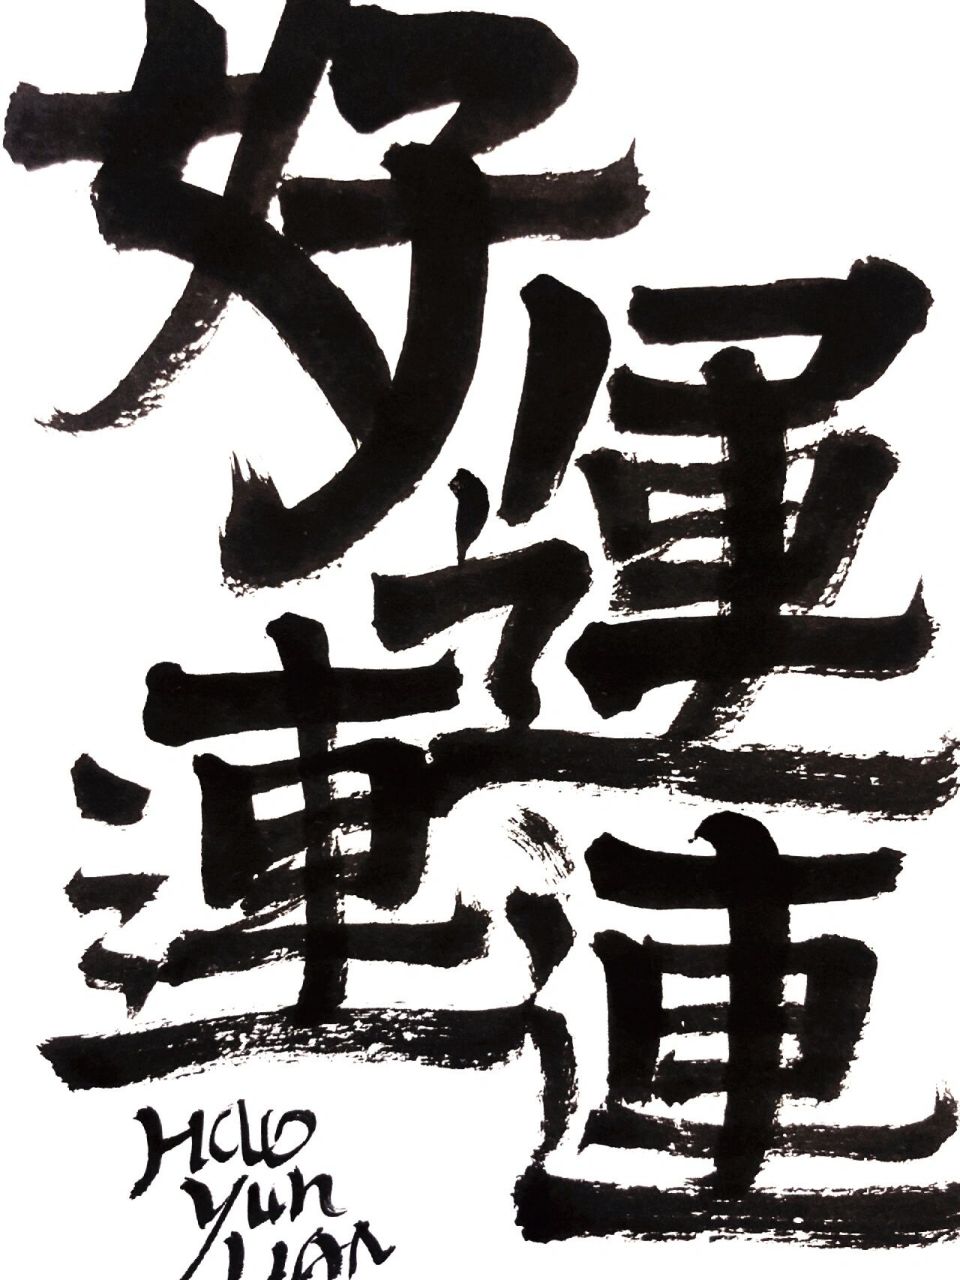 好
運
連
連
Hao
yun
lian